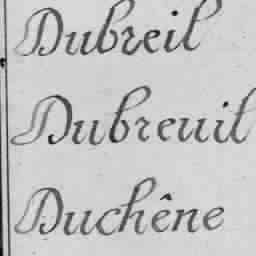 Dubreil
Dubreuil
Duchêne